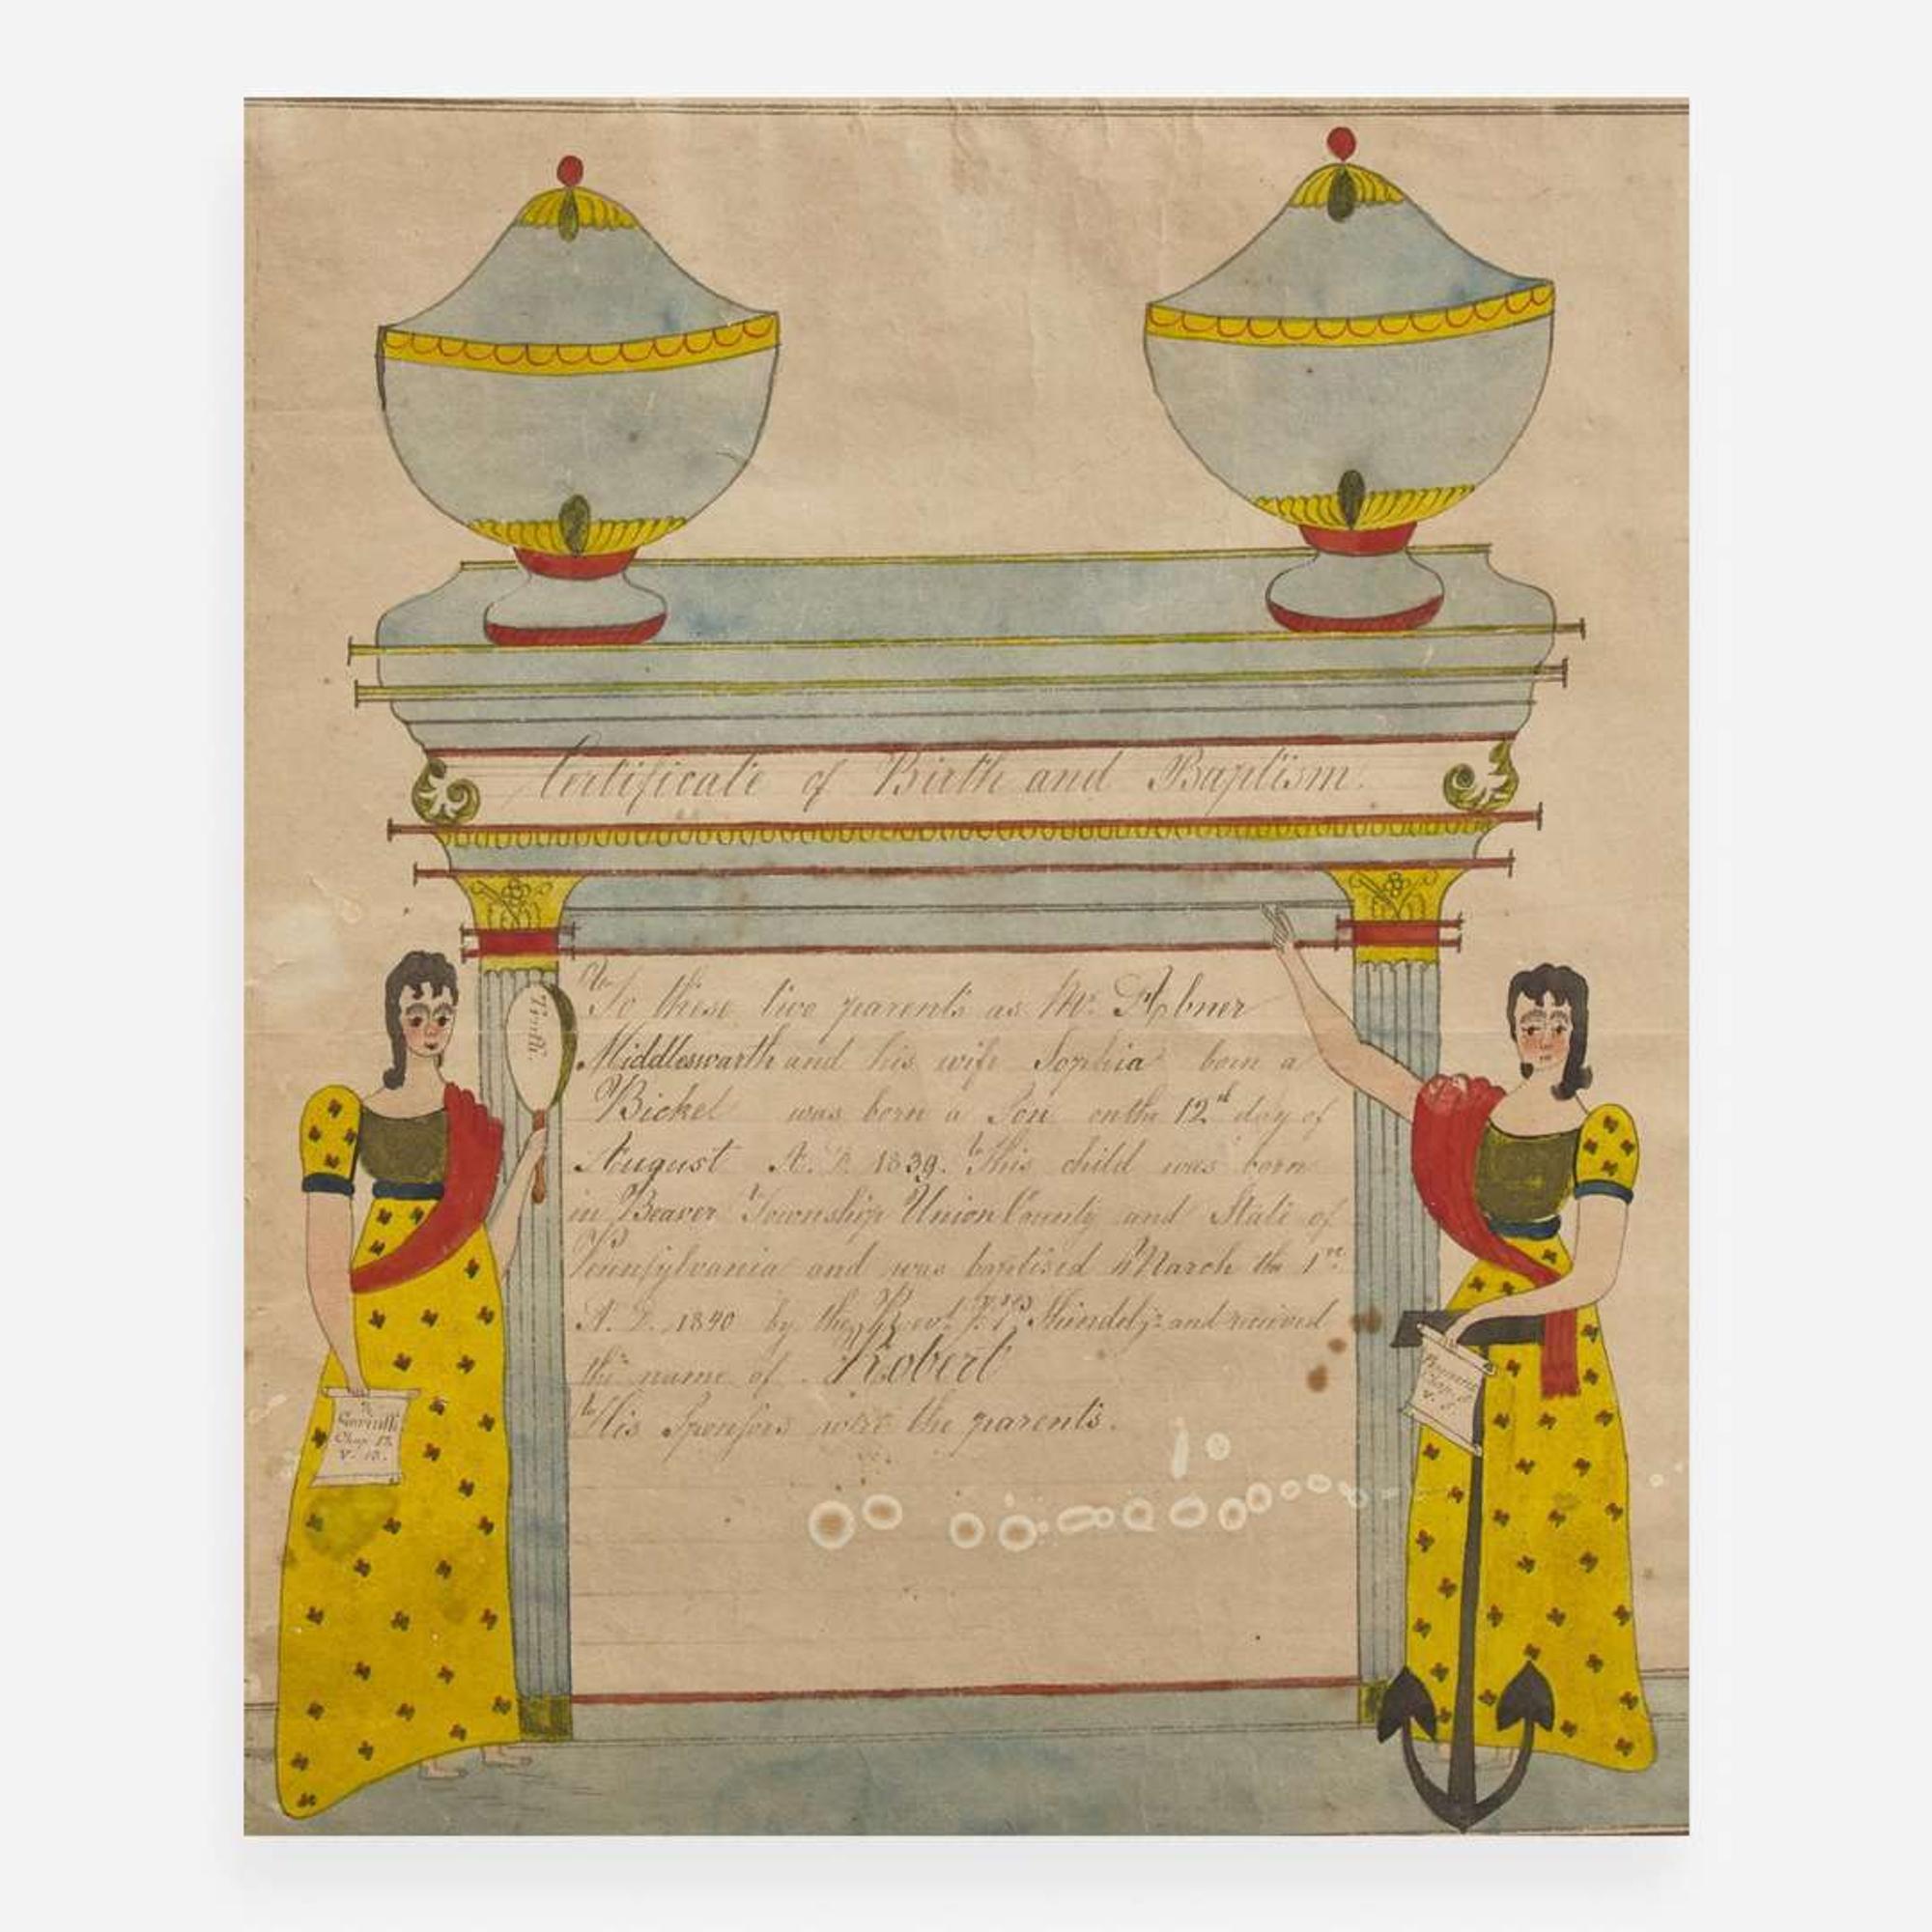 Certificate of Birth and Baptism.
To these two parents as Mr. Abner
Middleswarth and his wife Sophia born a
Bickel was born a Son on the 12d day of
August A. D. 1839. This child was born
in Beaver Township Union County and State of
Pennsylvania and was baptised March the 1st
A. D. 1840 by the Revd. J. P. Shindel jr and received
the name of Robert
His Sponsors were the parents.
Truth.
Corinth.
Chap. 13.
V. 13.
Chap.
V. 5